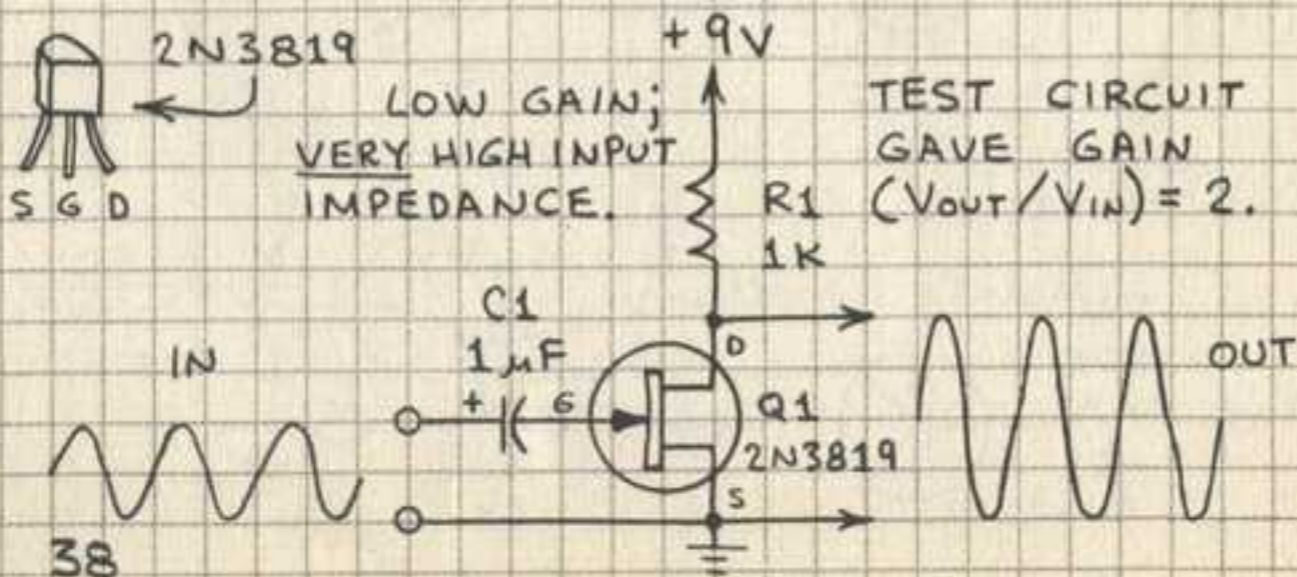 2N3819
S G D
LOW GAIN;
VERY HIGH INPUT
IMPEDANCE.
+9V
R1
1K
TEST CIRCUIT
GAVE GAIN
(VOUT/VIN) = 2.
IN
C1
1μF
+
G
D
Q1
2N3819
S
OUT
38